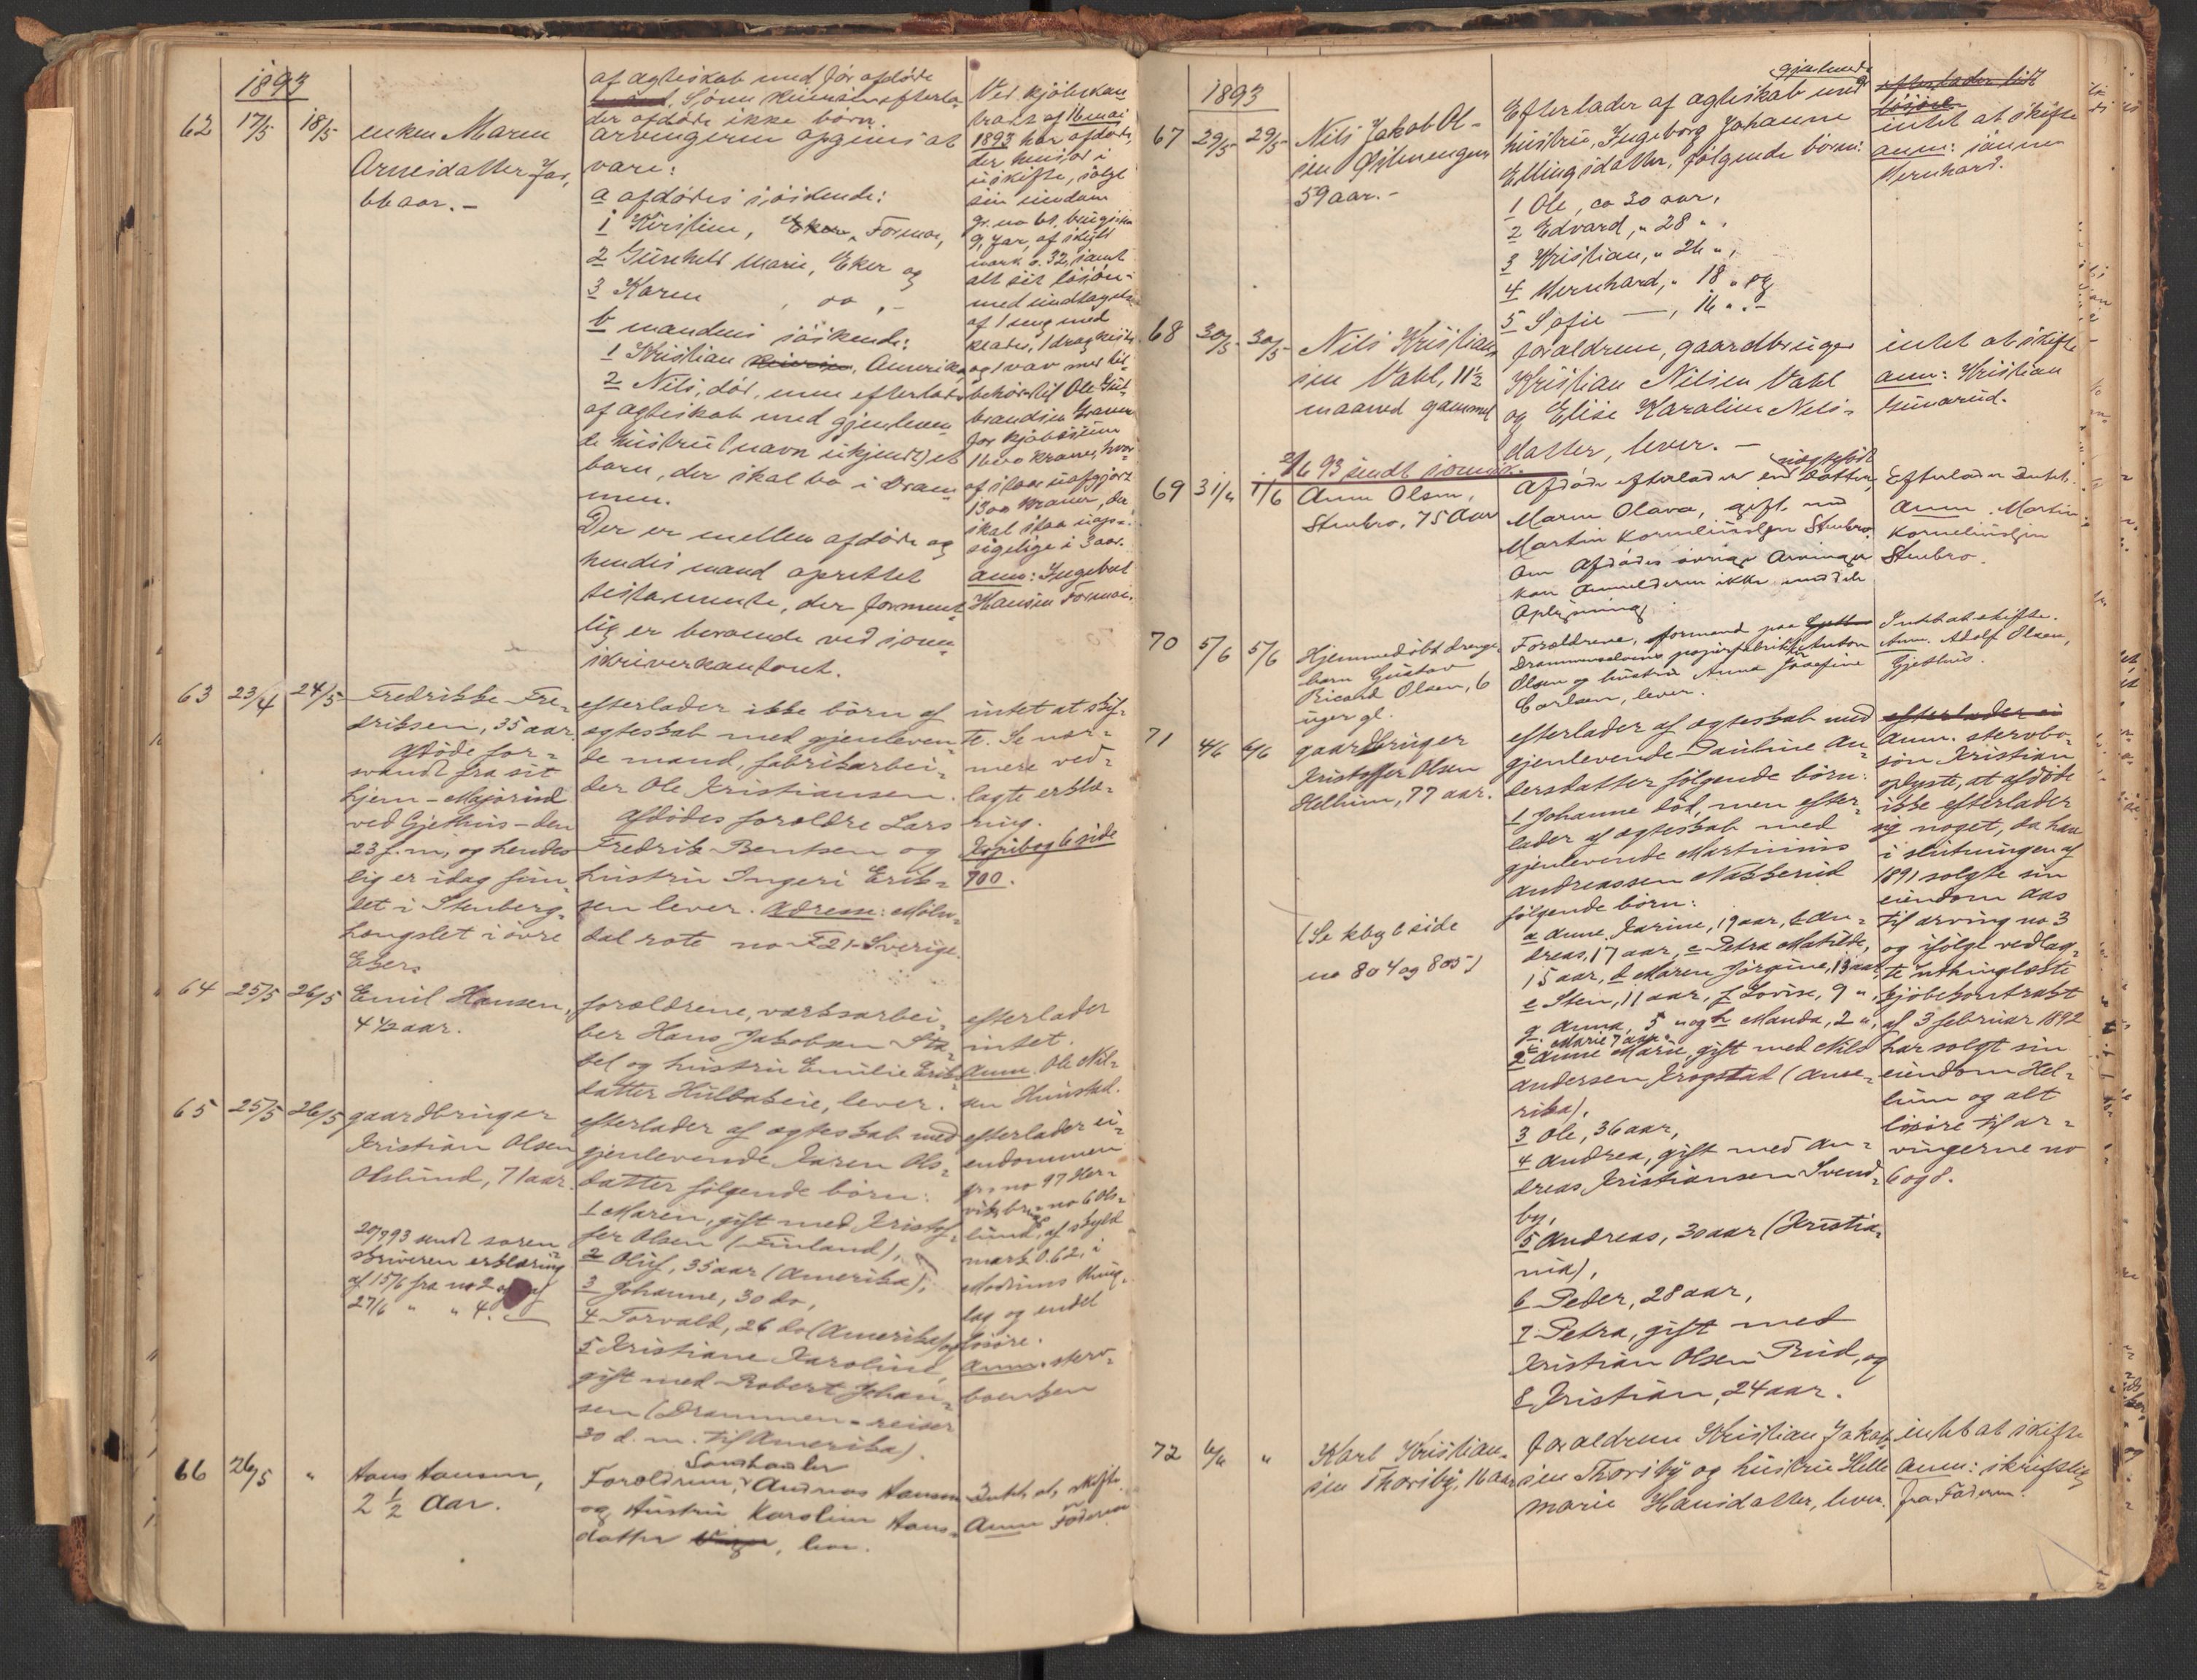 1893
af ægteskab med før afdøde
efterla-
der afdøde ikke børn.
62 17/5 18/5
enken Maren
Arnesdatter Jar,
66 aar. -
arvingerne opgives at
være:
a afdødes søskende:
1 Kirstine, Formoe,
2 Gunhild Marie, Eker og
3 Karen , do , -
b mandens søskende:
1 Kristian , Amerika,
2 Nils, død, men efterlader
af ægteskab med gjenleven
de hustru (navn ukjendt) et
barn, der skal bo i Dram-
men.
Der er mellem afdøde og
hendes mand oprettet
testamente, der forment-
lig er beroende ved soren-
skriverkontoret.
Ved kjøbekon
trakt af 16 mai
1893 har afdøde,
der hensad i
uskifte, solgt
sin eiendom
gr. no 61, brugsno
9, Jar, af skyld
mark 0.32, samt
alt sit løsøre
med undtagelse
af 1 seng med
klæder, 1 dragkiste
og 1 væv med til-
behør til Ole Gul-
brandsen
for kjøbesum
1600 kroner, hvor
af staar uafgjort
1300 kroner, der
skal staa uop-
sigelige i 3 aar.
anm: Ingebret
Hansen Formoe.
63 23/4 24/5
Fredrikke Fre-
driksen, 35 aar.
Afdøde for-
svandt fra sit
hjem - Majorind
ved Gjethus - den
23 f.m., og hendes
lig er idag fun-
det i Stenberg-
hængslet i øvre
Eker.
efterlader ikke børn af
ægteskab med gjenleven
de mand, fabrikarbei-
der Ole Kristiansen.
Afdødes forældre Lars
Fredrik Bentsen og
hustru Ingeri Erik-
sen lever. Adresse: Møln-
dal rote no F21-Sverige.
intet at skif-
te. Se nær-
mere ved-
lagte erklæ-
ring.
Kopibog 6 side
700.
64 25/5 26/5
Emil Hansen,
4 1/2 aar.
forældrene, værksarbei-
der Hans Jakobsen Sta-
bel og hustru Emilie Erik-
datter Hulbakeie, lever.
efterlader
intet.
Anm. Ole Nil-
sen Hunstad.
65 25/5 26/5
gaardbruger
Kristian Olsen
Olslund, 71 aar.
20/7 93 sendt soren
skriveren erklæring
af 15/6 fra no 2 og af
27/6 " " 4.
efterlader af ægteskab med
gjenlevende Karen Ols-
datter følgende børn:
1 Maren, gift med Kristof-
fer Olsen (Finland),
2 Oluf, 35 aar (Amerika),
3 Johanne, 30 do,
4 Torvald, 26 do (Amerika) og
5 Kristiane Karoline,
gift med Robert Johan-
sen (Drammen - reiser
30 d. m. til Amerika).
efterlader ei-
endommen
gr. no 97 Her-
vik br. no 6 Ols-
lund, af skyld
mark 0.62, i
Modums thing-
lag og endel
løsøre.
Anm. sterv-
boenken
66 26/5 "
Hans Hansen,
2 1/2 Aar.
Forældrene, Andreas Hansen
og Hustru Karoline Hans-
datter , lever.
Intet at skifte.
Anm Faderen
1893
67 29/5 29/5
Nils Jakob Ol-
sen
59 aar. -
gjenlevende
Efterlader af ægteskab med
hustru, Ingeborg Johanne
Ellingsdatter, følgende børn:
1 Ole, ca 30 aar,
2 Edvard, " 28 " ,
3 Kristian, " 26 " ,
4 Bernhard, " 18 " og
5 Sofie —, 16 " . -
efterlader lidt
løsøre
intet at skifte
anm: sønnen
Bernhard.
68 30/5 30/5
Nils Kristian-
sen Vahl, 11 1/2
maaned gammel
forældrene, gaardbruger
Kristian Nilsen Vahl
og Elise Karoline Nils-
datter, lever. -
intet at skifte
anm: Kristian
2/6 93 sendt
69 31/5 1/6
Anne Olsen,
Stenbro, 75 Aar
Afdøde efterlader en Datter,
Maren Olava, gift med
Martin Korneliussen Stenbro.
Om Afdødes øvrige Arvinger
kan Anmelderen ikke meddele
Oplysning.
Efterlader Intet.
Anm. Martin
Korneliussen
Stenbro.
70 5/6 5/6
Hjemmedøbt drenge-
barn Gustav
Ricard Olsen, 6
uger gl.
Forældrene, formand paa
Drammenselvens papirfabrikker Anton
Olsen og hustru Anna Josefine
Carlsen, lever.
Intet at skifte.
Anm. Adolf Olsen,
Gjethus.
71 4/6 6/6
gaardbruger
Kristoffer Olsen
Hellum, 77 aar.
(Se kbog 6 side
no 804 og 805)
efterlader af ægteskab med
gjenlevende Pauline An-
dersdatter følgende børn:
1 Johanne død, men efter-
lader af ægteskab med
gjenlevende Martinius
Andreassen Nakkerud
følgende børn:
a Anne Karine, 19 aar, b An-
dreas, 17 aar, c Petra Matilde,
15 aar, d Maren Jørgine, 13 aar,
e Sten, 11 aar, f Lovise, 9 ",
g Anna, 5 " og h Manda, 2 ",
i Marie 7 aar.
2 Anne Marie, gift med Nils
Andersen Krogstad (Ame-
rika),
3 Ole, 36 aar,
4 Andrea, gift med An-
dreas Kristiansen Svend-
by,
5 Andreas, 30 aar (Kristia-
nia),
6 Peder, 28 aar,
7 Petra, gift med
Kristian Olsen Rud, og
8 Kristian, 24 aar.
efterlader ei
Anm. stervbo-
søn Kristian
oplyste, at afdøde
ikke efterlader
sig noget, da han
i slutningen af
1891 solgte sin
eiendom Aas
til arving no 3
og ifølge vedlag-
te uthinglæste
kjøbekontrakt
af 3 februar 1892
har solgt sin
eiendom Hel-
lum og alt
løsøre til ar-
vingerne no
6 og 8.
72 6/6 "
Karl Kristian-
sen Thorsby, 16 aar
forældrene Kristian Jakob-
sen Thorsby og hustru Helle
Marie Hansdatter, lever.
intet at skifte
anm: skriftlig
fra Faderen.